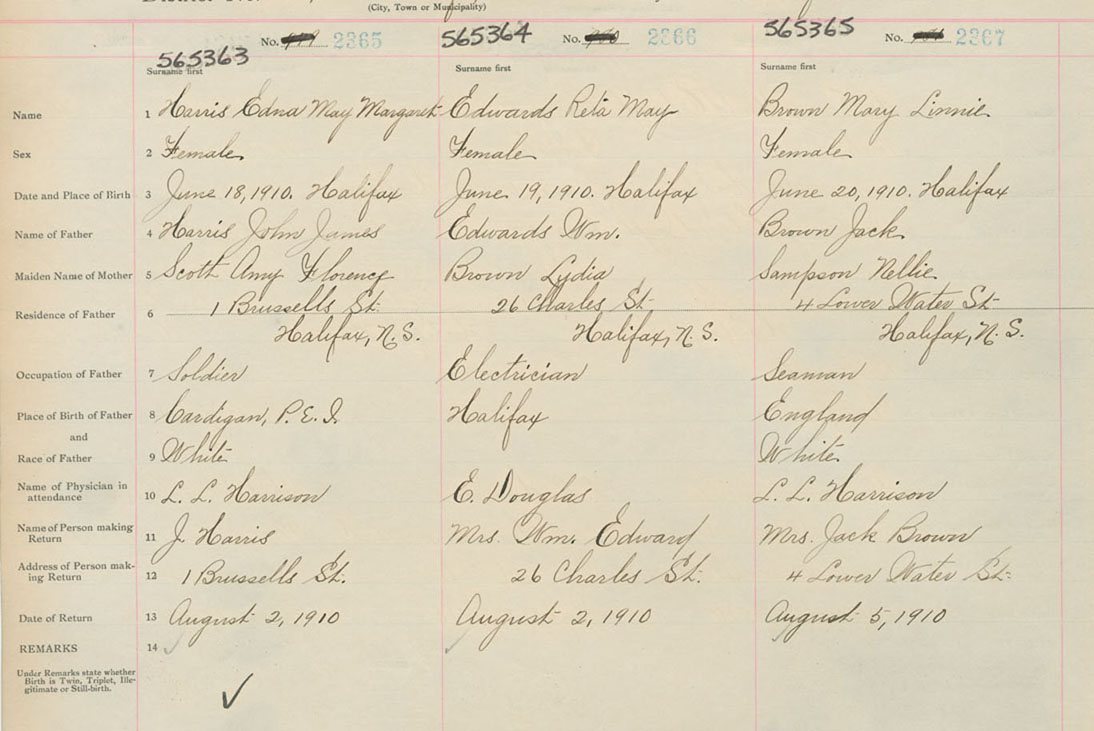 (City, Town or Municipality)
565363 No. 2365 565364 No. 2366 565365 No. 2367
Surname first Surname first Surname first
Name 1 Harris Edna May Margaret Edwards Reta May Brown Mary Linnie
Sex 2 Female Female Female
Date and Place of Birth 3 June 18, 1910. Halifax June 19, 1910. Halifax June 20, 1910. Halifax
Name of Father 4 Harris John James Edwards Wm. Brown Jack
Maiden Name of Mother 5 Scott Amy Florence Brown Lydia Sampson Nellie
Residence of Father 6 1 Brussells St. 26 Charles St. 4 Lower Water St.
Halifax, N.S. Halifax, N.S. Halifax, N.S.
Occupation of Father 7 Soldier Electrician Seaman
Place of Birth of Father 8 Cardigan, P.E.I. Halifax England
and
Race of Father 9 White White
Name of Physician in
attendance 10 L. L. Harrison E. Douglas L. L. Harrison
Name of Person making
Return 11 J. Harris Mrs. Wm. Edward Mrs. Jack Brown
Address of Person mak-
ing Return 12 1 Brussells St. 26 Charles St. 4 Lower Water St.
Date of Return 13 August 2, 1910 August 2, 1910 August 5, 1910
REMARKS 14
Under Remarks state whether
Birth is Twin, Triplet, Ille-
gitimate or Still-birth.